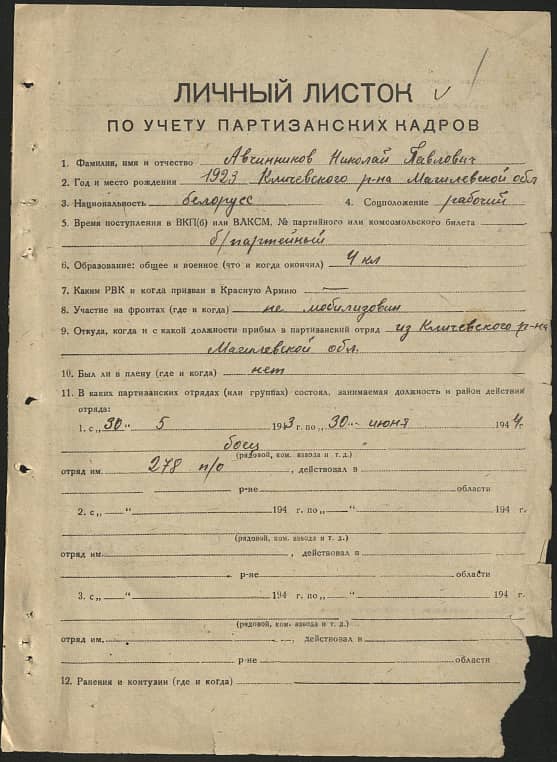 ЛИЧНЫЙ ЛИСТОК
ПО УЧЕТУ ПАРТИЗАНСКИХ КАДРОВ
1. Фамилия, имя и отчество Авчинников Николай Павлович
2. Год и место рождения 1923 Кличевского р-на Магилевской обл
3. Национальность белорусс 4. Соцположение рабочий
5. Время поступления в ВКП(б) или ВЛКСМ, № партийного или комсомольского билета
б/партейный
6. Образование: общее и военное (что и когда окончил) 4 кл
7. Каким РВК и когда призван в Красную Армию —
8. Участие на фронтах (где и когда) не мобилизован
9. Откуда, когда и с какой должности прибыл в партизанский отряд из Кличевского р-на
Магилевской обл.
10. Был ли в плену (где и когда) нет
11. В каких партизанских отрядах (или группах) состоял, занимаемая должность и район действия
отряда:
1. с „30" 5 1943 г. по „30" июня 1944 г.
боец
(рядовой, ком. взвода и т. д.)
отряд им. 278 п/о , действовал в
р-не области
2. с „ " 194 г. по „ " 194 г.
(рядовой, ком. взвода и т. д.)
отряд им. , действовал в
р-не области
3. с „ " 194 г. по „ " 194 г.
(рядовой, ком. взвода и т. д.)
отряд им. , действовал в
р-не области
12. Ранения и контузии (где и когда)